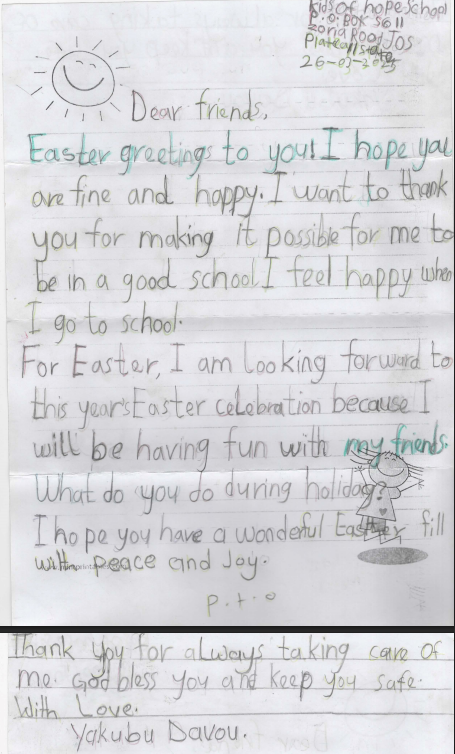 Kids of hope School
P.O. BOX 5611
Zaria Road Jos
Plateau State
26-03-2025
Dear friends,
Easter greetings to you! I hope you
are fine and happy. I want to thank
you for making it possible for me to
be in a good school I feel happy when
I go to school.
For Easter, I am looking forward to
this year's Easter celebration because I
will be having fun with my friends.
What do you do during holiday?
I hope you have a wonderful Easter fill
with peace and Joy.
P.t.o
Thank you for always taking care of
me. God bless you and keep you safe.
With Love.
Yakubu Davou.